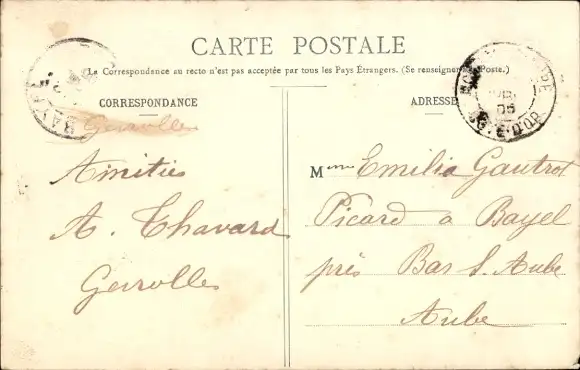 CARTE POSTALE
(La Correspondance au recto n'est pas acceptée par tous les Pays Étrangers. (Se renseigner Poste.)
CORRESPONDANCE
Gevrolles
Amitiés
A. Thavard
Gevrolles
ADRESSE
Mme Emilia Gautrot
Picard à Bayel
près Bar S. Aube
Aube
BAY
05
D'OR